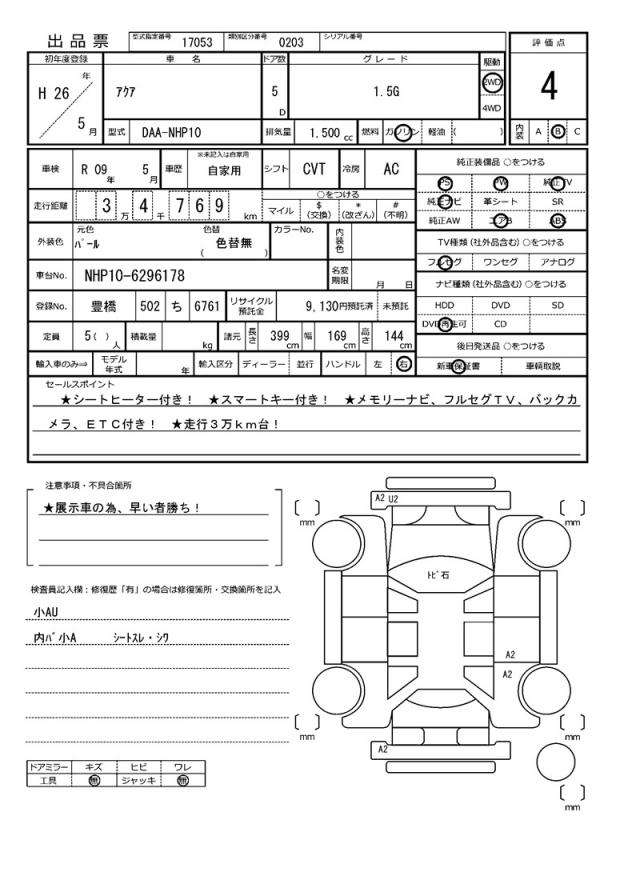 出品票 型式指定番号 17053 類別区分番号 0203 シリアル番号
初年度登録 車名 ドア数 グレード 駆動 評価点
H 26 年 5 月 アクア 5 D 1.5G 2WD 4WD 4
型式 DAA-NHP10 排気量 1.500 cc 燃料 ガソリン 軽油 ( ) 内装 A B C
車検 R 09 年 5 月 車歴 ※未記入は自家用 自家用 シフト CVT 冷房 AC
純正装備品 ○をつける
PS PW 純正TV
純正ナビ 革シート SR
純正AW エアB ABS
走行距離 3 万 4 千 7 6 9 km ○をつける マイル $ (交換) * (改ざん) # (不明)
外装色 元色 パール 色替 ( 色替無 ) カラーNo. 内装色
TV種類 (社外品含む) ○をつける
フルセグ ワンセグ アナログ
車台No. NHP10-6296178 名変期限 月 日
ナビ種類 (社外品含む) ○をつける
HDD DVD SD
DVD再生可 CD
登録No. 豊橋 502 ち 6761 リサイクル預託金 9,130円預託済 未預託
定員 5 ( ) 人 積載量 kg 諸元 長さ 399 cm 幅 169 cm 高さ 144 cm
後日発送品 ○をつける
新車保証書 車輌取説
輸入車のみ⇒ モデル年式 年 輸入区分 ディーラー 並行 ハンドル 左 右
セールスポイント
★シートヒーター付き! ★スマートキー付き! ★メモリーナビ、フルセグTV、バックカ
メラ、ETC付き! ★走行3万km台!
注意事項・不具合箇所
★展示車の為、早い者勝ち!
検査員記入欄:修復歴「有」の場合は修復箇所・交換箇所を記入
小AU
内バ小A シートスレ・シワ
ドアミラー キズ ヒビ ワレ
工具 無 ジャッキ 無
A2 U2
mm mm
トビ石
A2
A2
mm mm
A2
mm